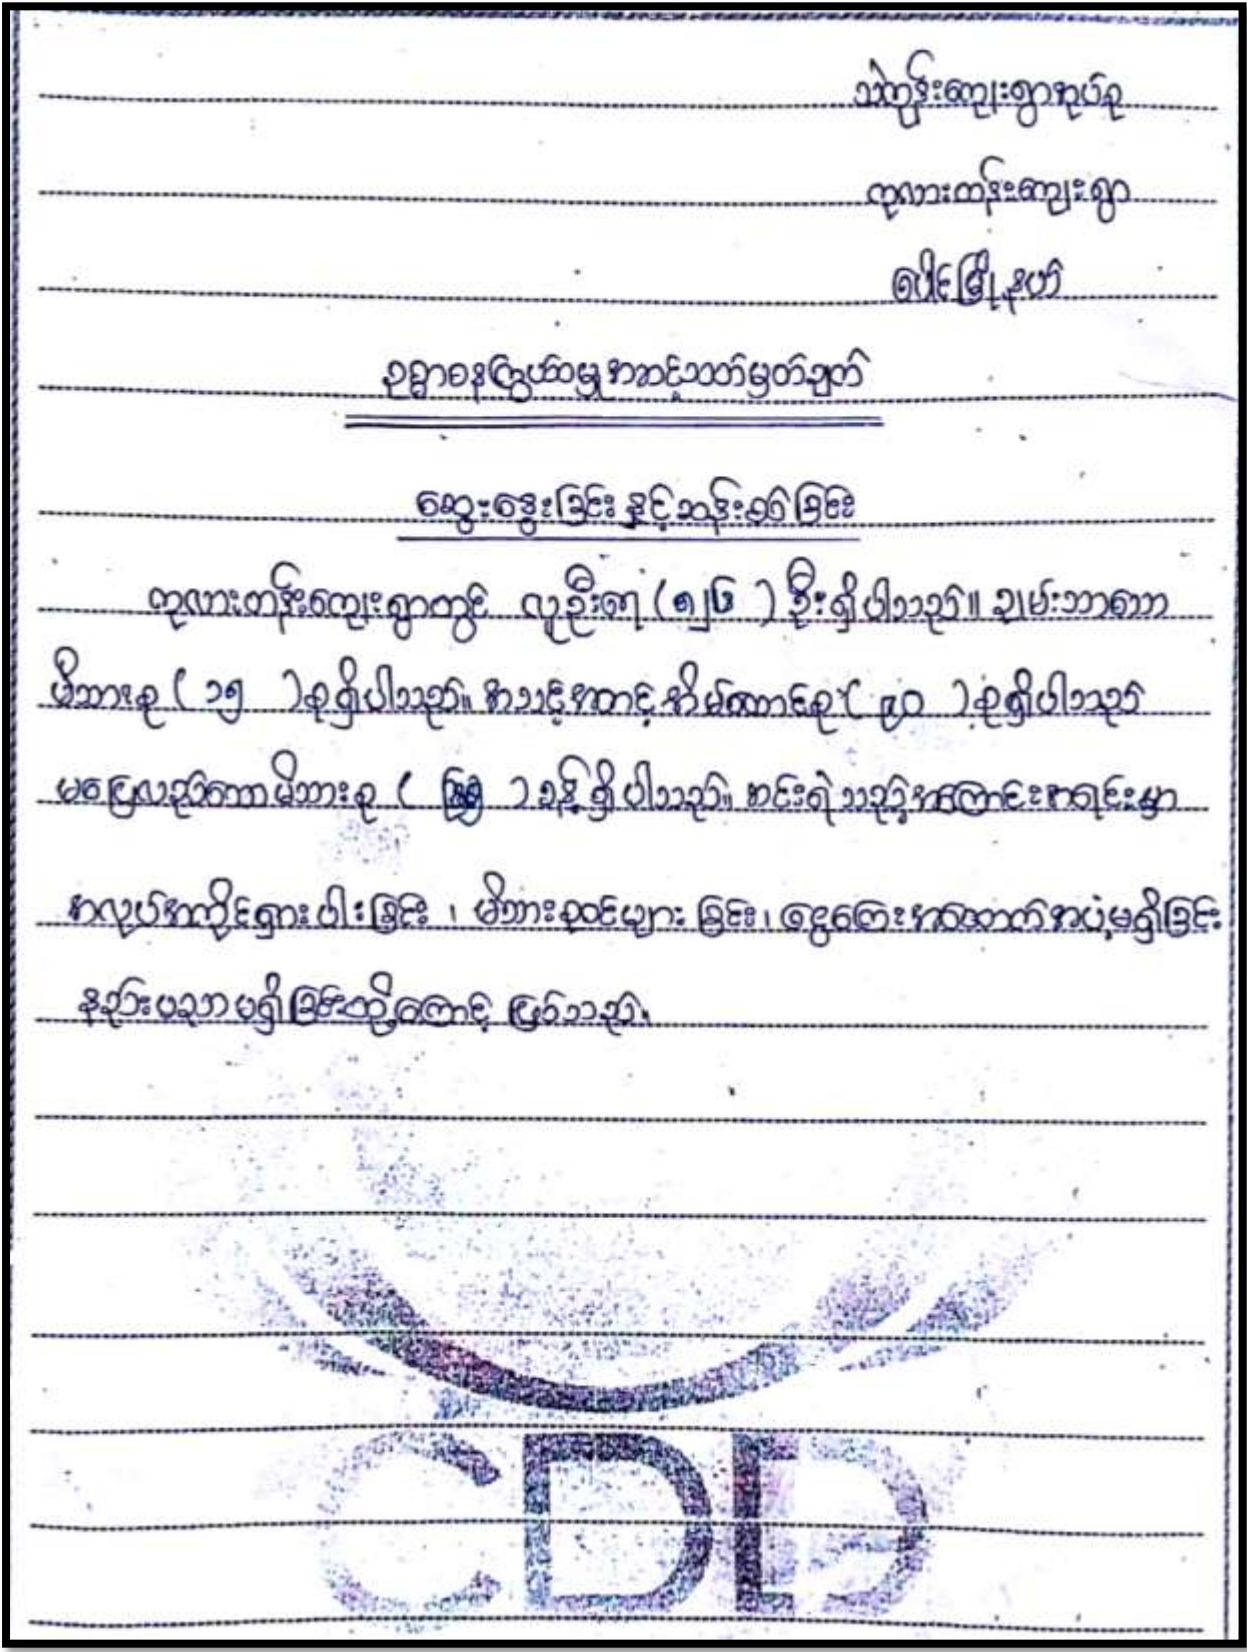 သဲကုန်းကျေးရွာအုပ်စု
ကုလားတန်းကျေးရွာ
ပေါင်မြို့နယ်
ဥစ္စာဓနကြွယ်ဝမှုအဆင့်သတ်မှတ်ချက်
ဆွေးနွေးခြင်းနှင့်ဆန်းစစ်ခြင်း
ကုလားတန်းကျေးရွာတွင် လူဦးရေ ( ၅၂၆ ) ဦးရှိပါသည်။ ချမ်းသာသော
မိသားစု ( ၁၅ ) စုရှိပါသည်။ အသင့်အတင့်အိမ်ထောင်စု ( ၉၀ ) စုရှိပါသည်
မပြေလည်သောမိသားစု ( ) ခန့်ရှိပါသည်။ ဆင်းရဲသည့်အကြောင်းအရင်းမှာ
အလုပ်အကိုင်ရှားပါးခြင်း ၊ မိသားစုဝင်များခြင်း ၊ ငွေကြေးအထောက်အပံ့မရှိခြင်း
နည်းပညာမရှိခြင်းတို့ကြောင့် ဖြစ်သည်။
CDD